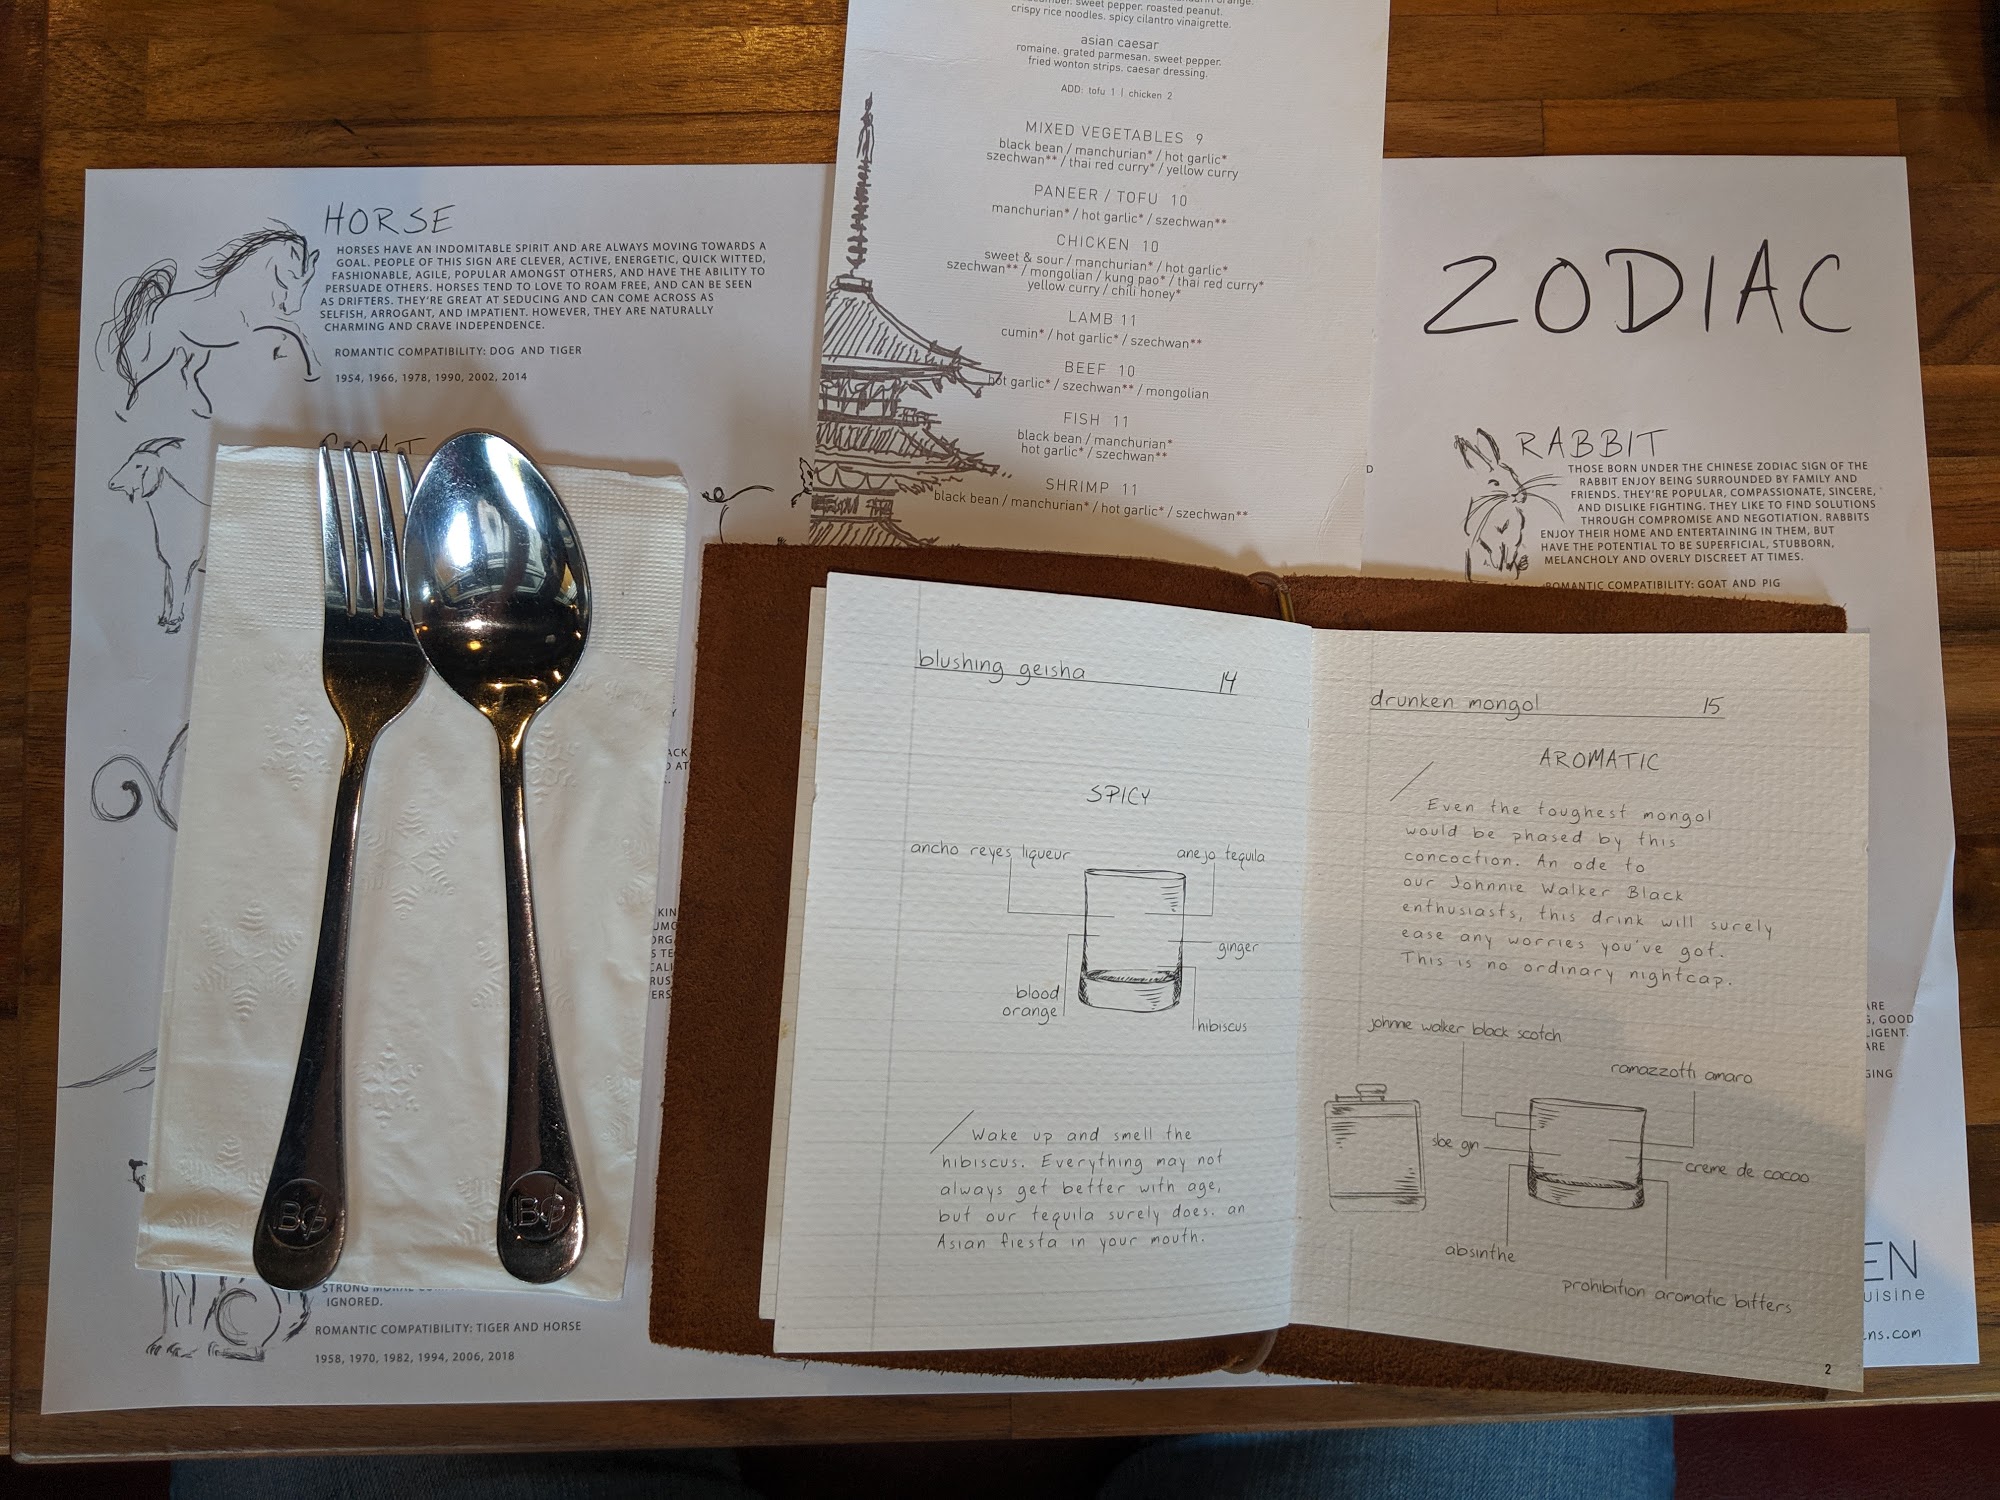 cumber. sweet pepper. roasted peanut.
crispy rice noodles. spicy cilantro vinaigrette.
asian caesar
romaine. grated parmesan. sweet pepper.
fried wonton strips. caesar dressing.
ADD: tofu 1 | chicken 2
MIXED VEGETABLES 9
black bean / manchurian* / hot garlic*
szechwan** / thai red curry* / yellow curry
PANEER / TOFU 10
manchurian* / hot garlic* / szechwan**
CHICKEN 10
sweet & sour / manchurian* / hot garlic*
szechwan** / mongolian / kung pao* / thai red curry*
yellow curry / chili honey*
LAMB 11
cumin* / hot garlic* / szechwan**
BEEF 10
hot garlic* / szechwan** / mongolian
FISH 11
black bean / manchurian*
hot garlic* / szechwan**
SHRIMP 11
black bean / manchurian* / hot garlic* / szechwan**
HORSE
HORSES HAVE AN INDOMITABLE SPIRIT AND ARE ALWAYS MOVING TOWARDS A
GOAL. PEOPLE OF THIS SIGN ARE CLEVER, ACTIVE, ENERGETIC, QUICK WITTED,
FASHIONABLE, AGILE, POPULAR AMONGST OTHERS, AND HAVE THE ABILITY TO
PERSUADE OTHERS. HORSES TEND TO LOVE TO ROAM FREE, AND CAN BE SEEN
AS DRIFTERS. THEY'RE GREAT AT SEDUCING AND CAN COME ACROSS AS
SELFISH, ARROGANT, AND IMPATIENT. HOWEVER, THEY ARE NATURALLY
CHARMING AND CRAVE INDEPENDENCE.
ROMANTIC COMPATIBILITY: DOG AND TIGER
1954, 1966, 1978, 1990, 2002, 2014
GOAT
STRONG MORAL
IGNORED.
ROMANTIC COMPATIBILITY: TIGER AND HORSE
1958, 1970, 1982, 1994, 2006, 2018
BG
BG
ZODIAC
RABBIT
THOSE BORN UNDER THE CHINESE ZODIAC SIGN OF THE
RABBIT ENJOY BEING SURROUNDED BY FAMILY AND
FRIENDS. THEY'RE POPULAR, COMPASSIONATE, SINCERE,
AND DISLIKE FIGHTING. THEY LIKE TO FIND SOLUTIONS
THROUGH COMPROMISE AND NEGOTIATION. RABBITS
ENJOY THEIR HOME AND ENTERTAINING IN THEM, BUT
HAVE THE POTENTIAL TO BE SUPERFICIAL, STUBBORN,
MELANCHOLY AND OVERLY DISCREET AT TIMES.
ROMANTIC COMPATIBILITY: GOAT AND PIG
ARE
GOOD
LIGENT.
ARE
GING
EN
uisine
ns.com
blushing geisha 14
SPICY
ancho reyes liqueur
anejo tequila
ginger
blood
orange
hibiscus
Wake up and smell the
hibiscus. Everything may not
always get better with age,
but our tequila surely does. an
Asian fiesta in your mouth.
drunken mongol 15
AROMATIC
Even the toughest mongol
would be phased by this
concoction. An ode to
our Johnnie Walker Black
enthusiasts, this drink will surely
ease any worries you've got.
This is no ordinary nightcap.
johnnie walker black scotch
ramazzotti amaro
sloe gin
creme de cacao
absinthe
prohibition aromatic bitters
2